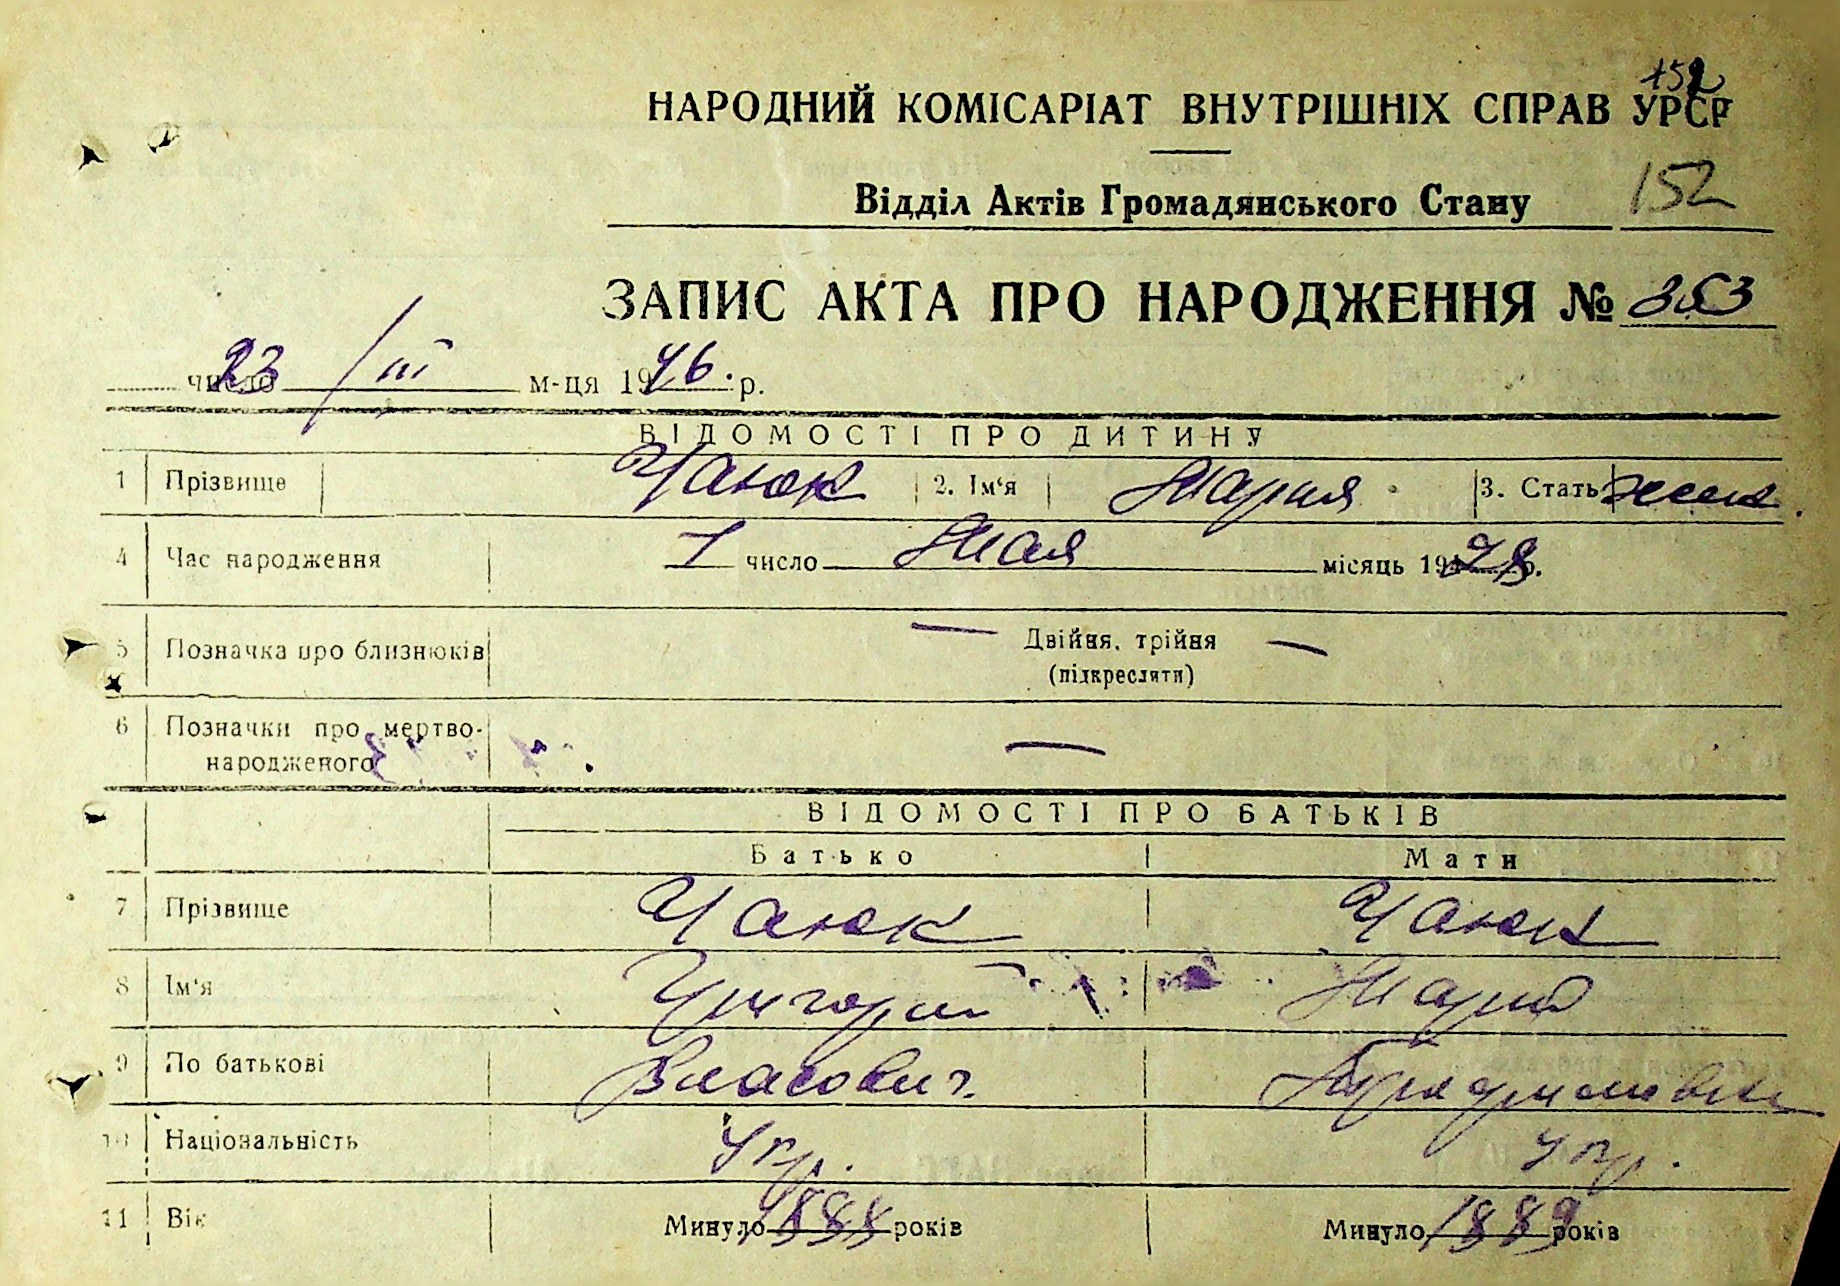 152
НАРОДНИЙ КОМІСАРІАТ ВНУТРІШНІХ СПРАВ УРСР
Відділ Актів Громадянського Стану 152
ЗАПИС АКТА ПРО НАРОДЖЕННЯ №
23 число / III м-ця 1946. р.
ВІДОМОСТІ ПРО ДИТИНУ
1 Прізвище Чаюк 2. Ім‘я Мария 3. Стать жен.
4 Час народження 1 число Мая місяць 1928 р.
5 Позначка про близнюків — Двійня, трійня —
(підкреслити)
6 Позначки про мертво-
народженого —
ВІДОМОСТІ ПРО БАТЬКІВ
Батько Мати
7 Прізвище Чаюк Чаюк
8 Ім‘я Григорий Мария
9 По батькові Власович
10 Національність Укр. Укр.
11 Вік Минуло 1888 років Минуло 1889 років